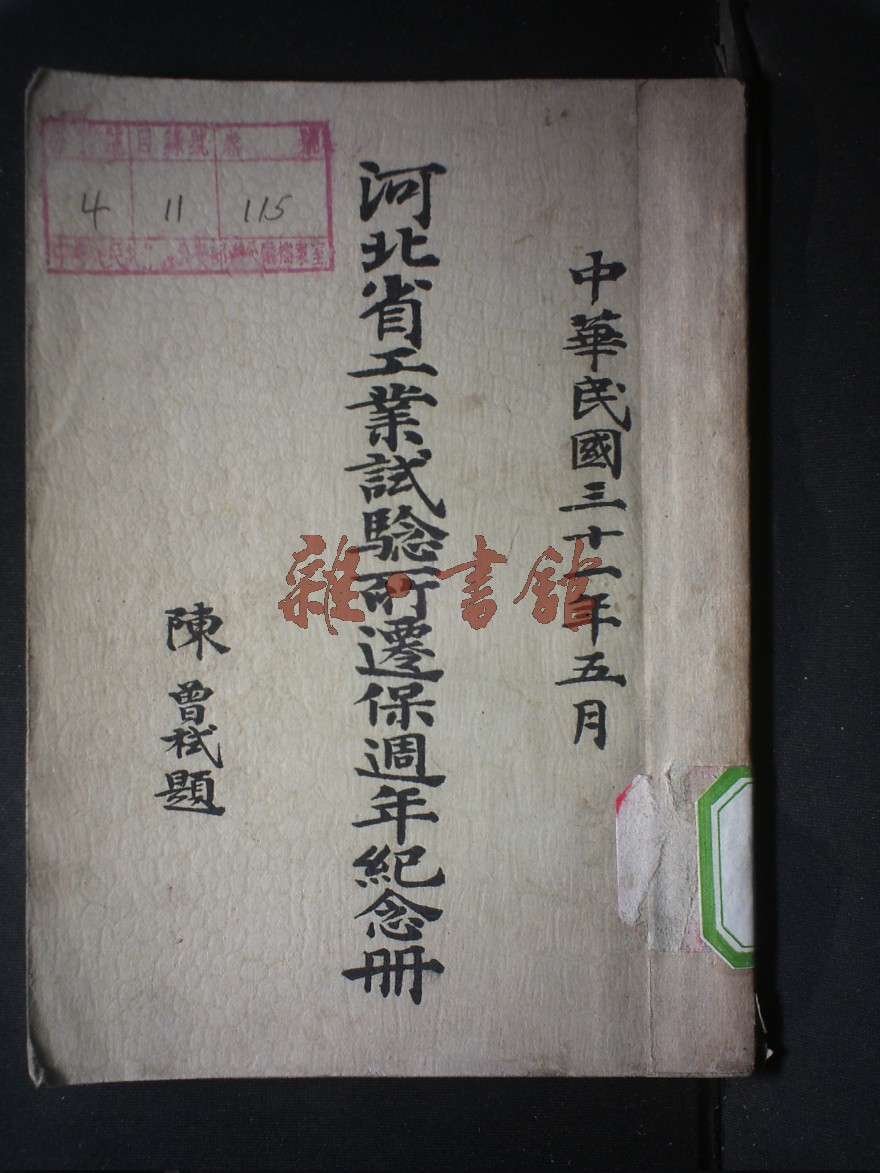 中華民國三十二年五月
河北省工業試驗所遷保週年紀念册
陳曾栻題
號 目錄號 案號
4 11 115
雜·書館